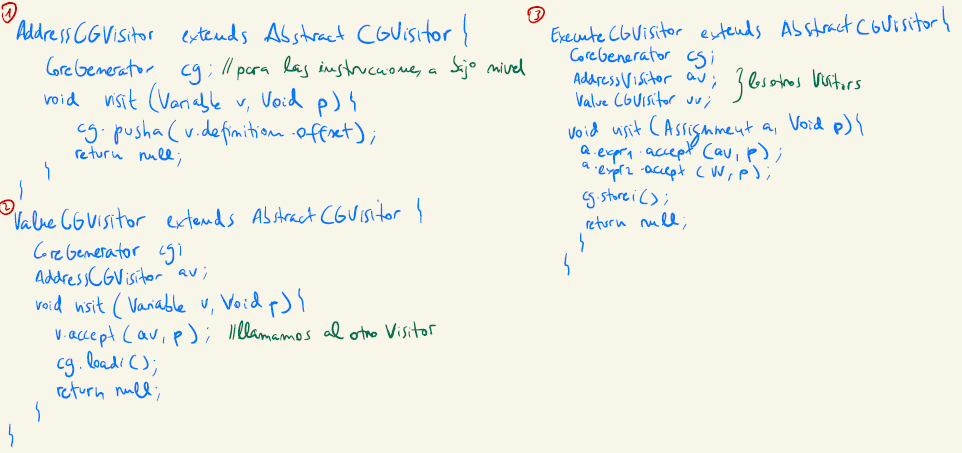 1
AddressCGVisitor extends Abstract CGVisitor {
CoreGenerator cg; // para las instrucciones a bajo nivel
void visit (Variable v, Void p) {
cg.pusha(v.definition.offset);
return null;
}
}
2
ValueCGVisitor extends Abstract CGVisitor {
CoreGenerator cg;
AddressCGVisitor av;
void visit (Variable v, Void p) {
v.accept (av, p); //llamamos al otro Visitor
cg.loadi();
return null;
}
}
3
ExecuteCGVisitor extends Abstract CGVisitor {
CoreGenerator cg;
AddressVisitor av; } los otros Visitors
Value CGVisitor vv;
void visit (Assignment a, Void p) {
a.expr1.accept (av, p);
a.expr2.accept (vv, p);
cg.storei();
return null;
}
}